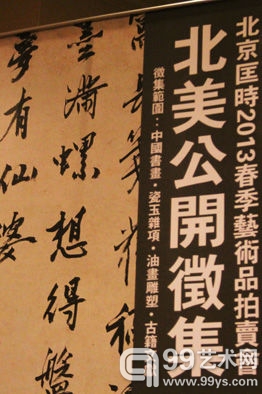 北京匡時2013春季藝術品拍賣會
北美公開徵集
徵集範圍：中國書畫·瓷玉雜項·油畫雕塑·古籍
墨滿螺想得盤
夢有仙婆
99艺术网
www.99ys.com